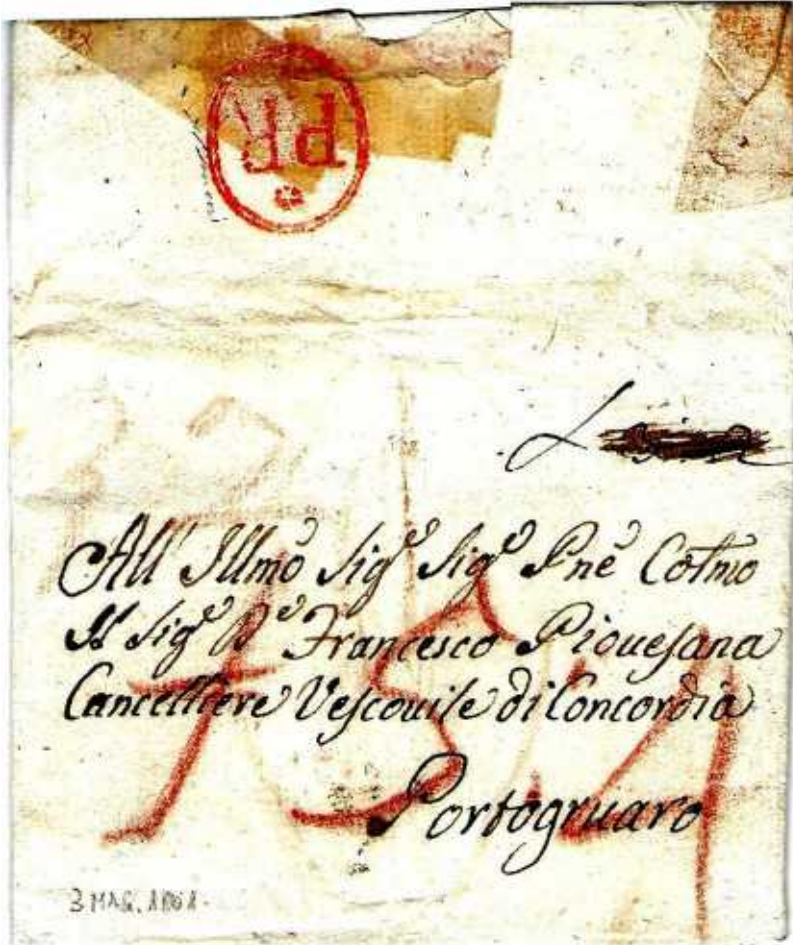 PR
All' Illmo Sig.e Sig.e Pne Colmo
Il Sig.e D.e Francesco Piouesana
Cancelliere Vescouile di Concordia
Portogruaro
3 MAG. 1801.